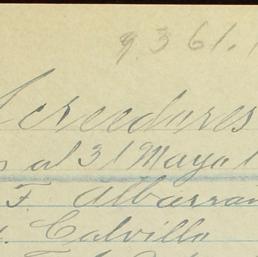 9.361.
Acreedores
al 31 Mayo
F. Albarran
Calvillo